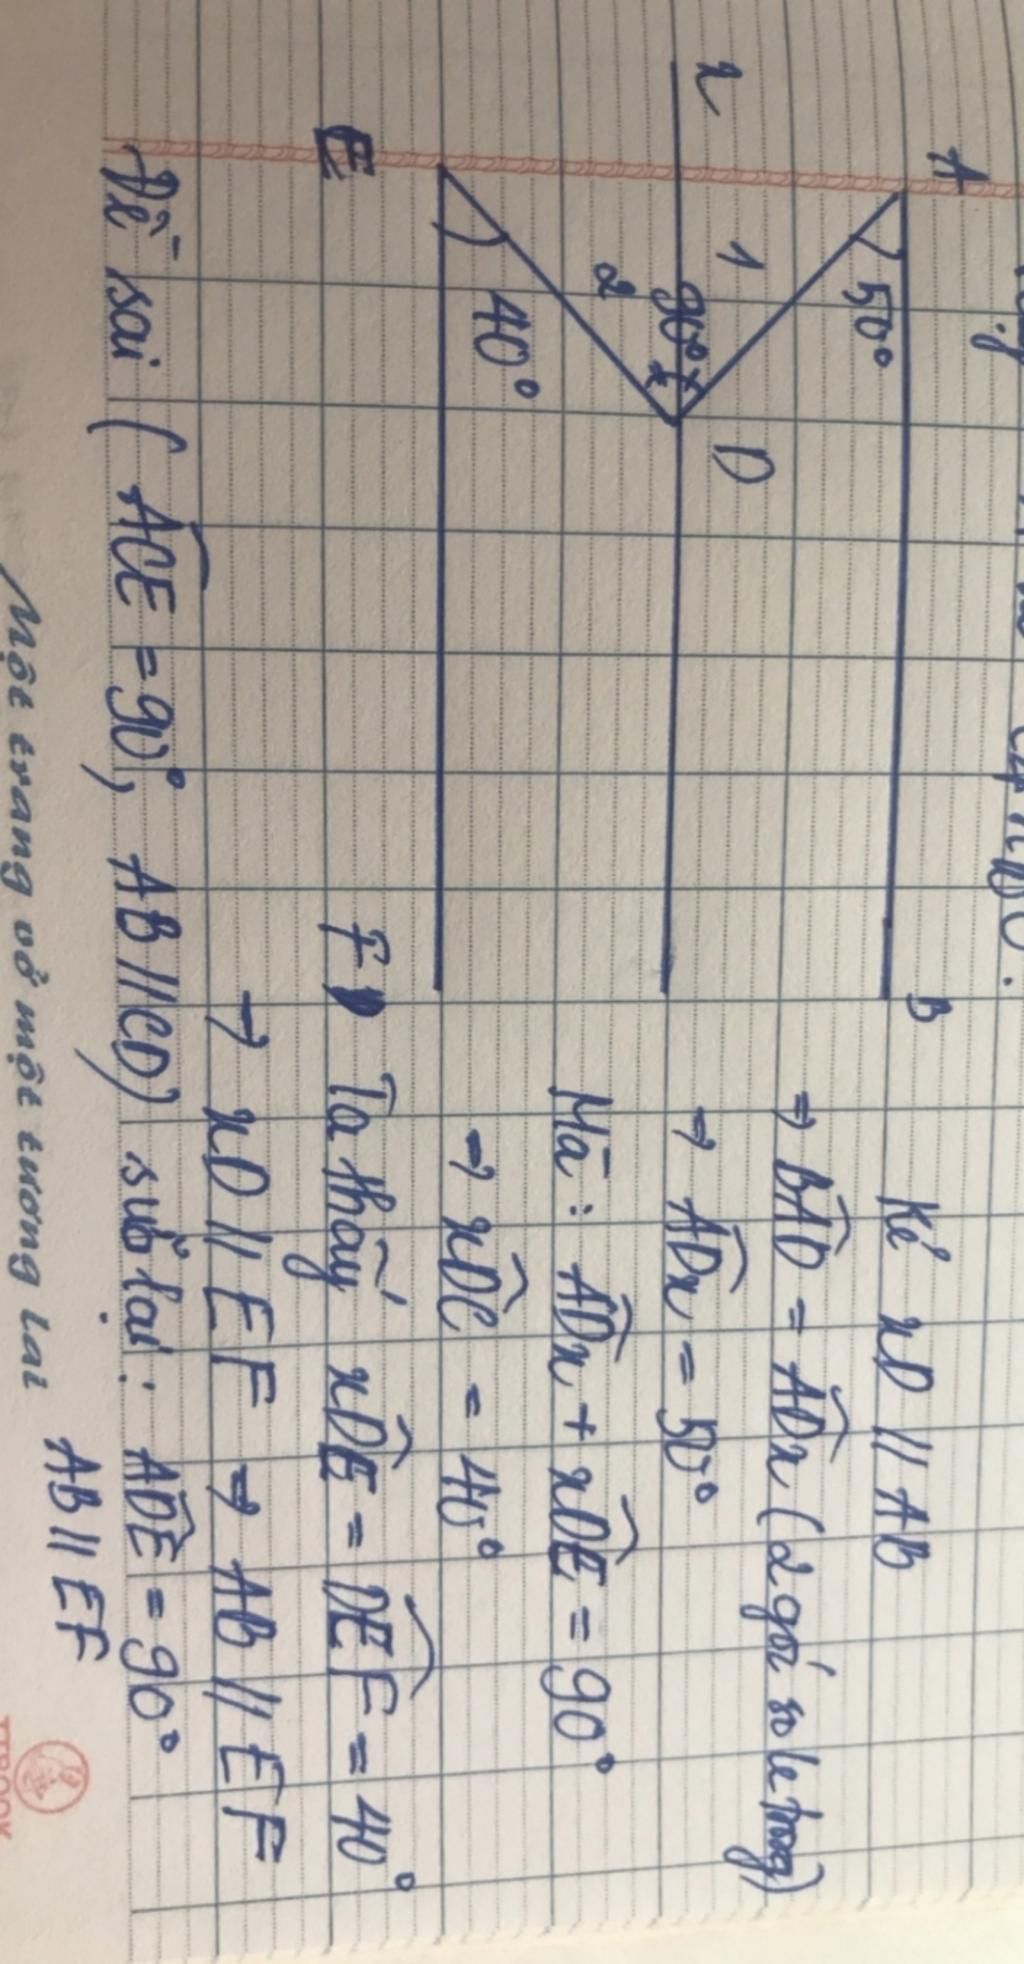 x
A
B
1
50°
90°
D
2
40°
E
F
Kẻ xD // AB
⇒ BAD̂ = ADx̂ (2 góc so le trong)
→ ADx̂ = 50°
Mà: ADx̂ + xDÊ = 90°
→ xDĈ = 40°
Ta thấy xDÊ = DEF̂ = 40°
→ xD // EF → AB // EF
Đề sai (ACÊ = 90°, AB // CD) sửa lại: ADÊ = 90°
AB // EF
Một trang vở một tương lai